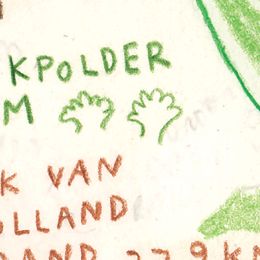 KPOLDER
M
K VAN
OLLAND
RAND 27,9 KM